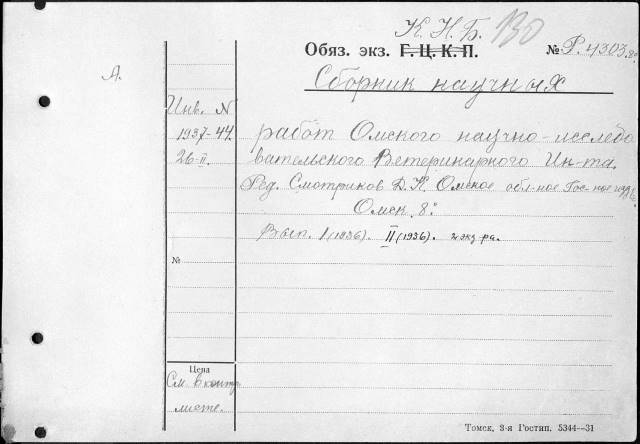 К. Н. Б. ВО
Обяз. экз. Г. Ц. К. П. № Р. 4303.80
А.
Сборник научных
Инв. N
1937-44.
26-II.
работ Омского научно-исследо
вательского Ветеринарного Ин-та.
Ред. Смотриков Д. К. Омское обл-ное Гос-ное изд.
Омск. 8º
Вып. I (1936). II (1936). 2 экз-ра.
№
Цена
См. в контр.
листе.
Томск, 3-я Гостип. 5344—31